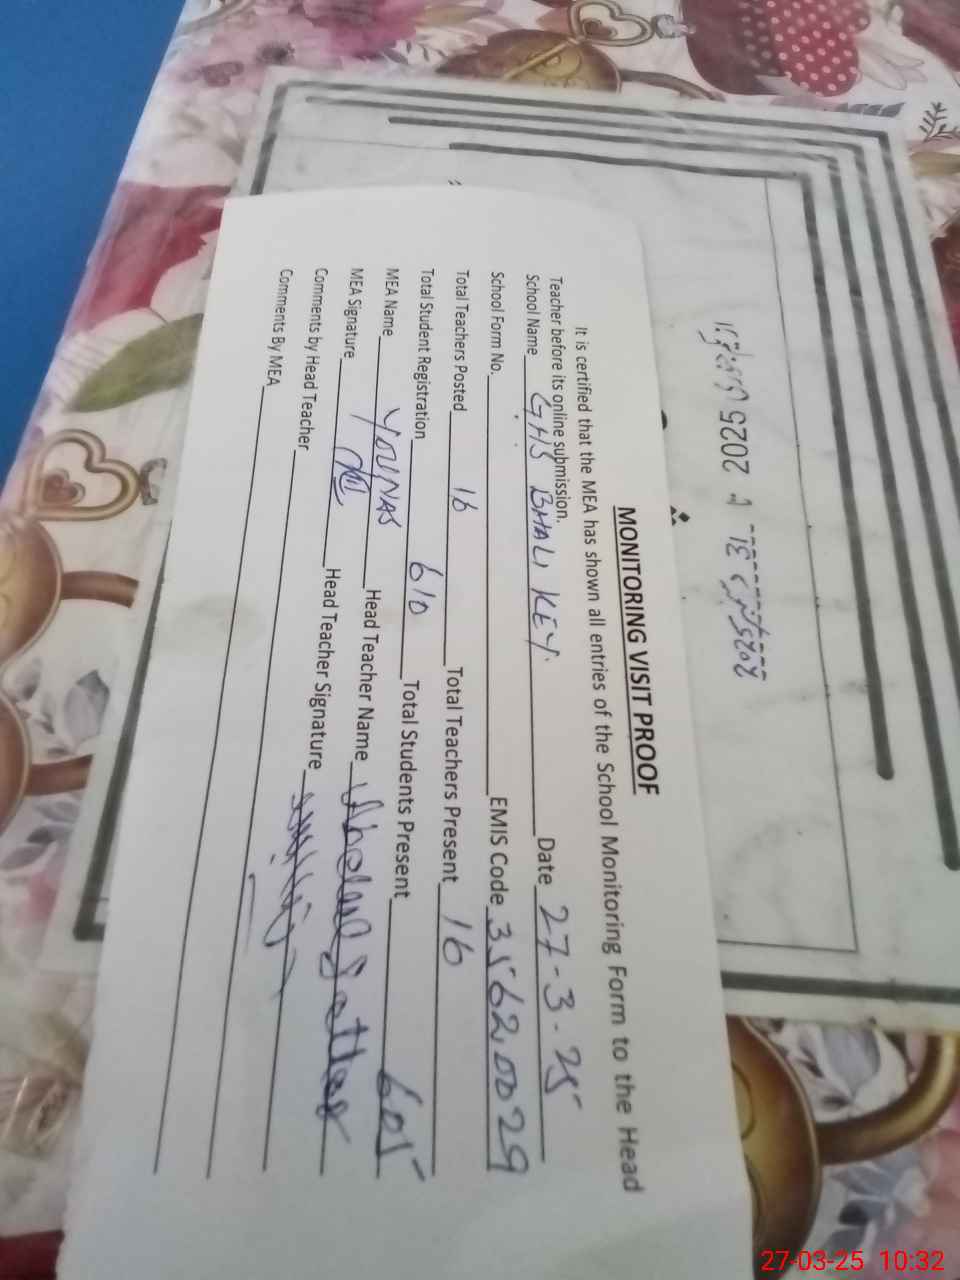 MONITORING VISIT PROOF
It is certified that the MEA has shown all entries of the School Monitoring Form to the Head
Teacher before its online submission.
School Name GHS BHALI KEY. Date 27-3-25
School Form No. EMIS Code 35620029
Total Teachers Posted 16 Total Teachers Present 16
Total Student Registration 610 Total Students Present 605
MEA Name YOUNAS Head Teacher Name Sattar
MEA Signature Head Teacher Signature
Comments by Head Teacher
Comments By MEA
2025
27-03-25 10:32